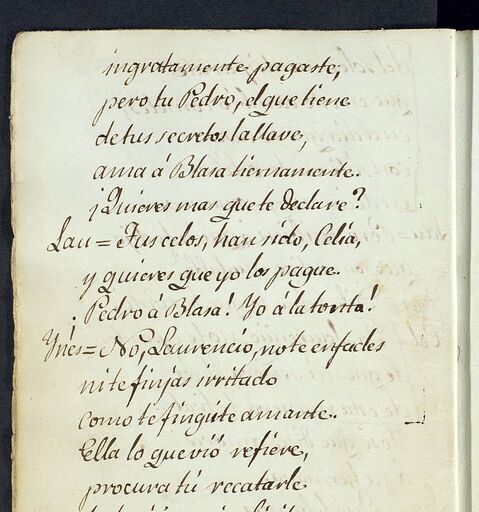 ingratamente pagaste;
pero tu Pedro, el que tiene
de tus secretos la llave,
ama á Blasa tiernamente.
¿Quieres mas que te declare?
Lau = Tus celos, han sido, Celia,
y quieres que yo los pague.
¡Pedro á Blasa! Yo á la tonta!
Ynés = No, Laurencio, no te enfades
ni te finjas irritado
como te fingiste amante.
Ella lo que vió refiere,
procura tú recatarle